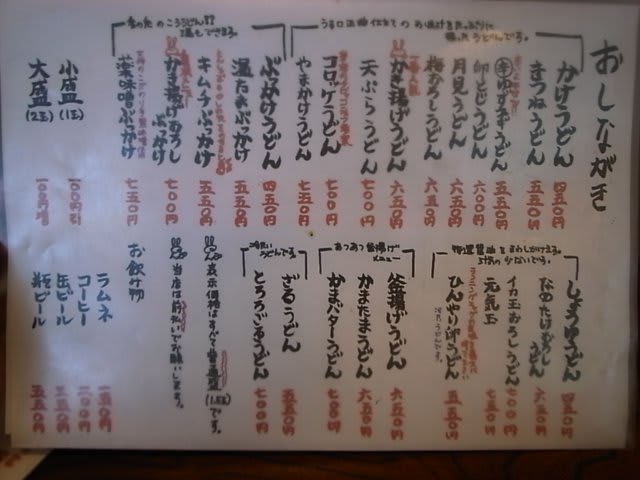 おしながき
うす口正油仕立ての
かけうどん 四五〇円
きつねうどん 五五〇円
ゆずきうどん 五五〇円
卵とじうどん 六〇〇円
月見うどん 五五〇円
梅おろしうどん 六五〇円
かき揚げうどん 六五〇円
天ぷらうどん 七〇〇円
コロッケうどん 七〇〇円
やまかけうどん 七五〇円
ぶっかけうどん 四五〇円
温たまぶっかけ 五五〇円
キムチぶっかけ 五五〇円
かき揚げおろしぶっかけ 七〇〇円
薬味噌ぶっかけ 七五〇円
小盛(1玉) 一〇〇円引
大盛(2玉) 一〇〇円増
しょうゆうどん 四五〇円
なめたけおろしうどん 六五〇円
イカ玉おろしうどん 七〇〇円
元気玉 七五〇円
五五〇円
あつあつ釜揚げメニュー
釜揚げうどん 六五〇円
かまたまうどん 六五〇円
かまバターうどん 七〇〇円
冷たいうどんです。
ざるうどん 五五〇円
とろろざるうどん 七〇〇円
表示価格はすべて普通盛(1.5玉)です。
当店は前払いでお願いします。
お飲み物
ラムネ 一五〇円
コーヒー 二〇〇円
缶ビール 三五〇円
瓶ビール 五五〇円